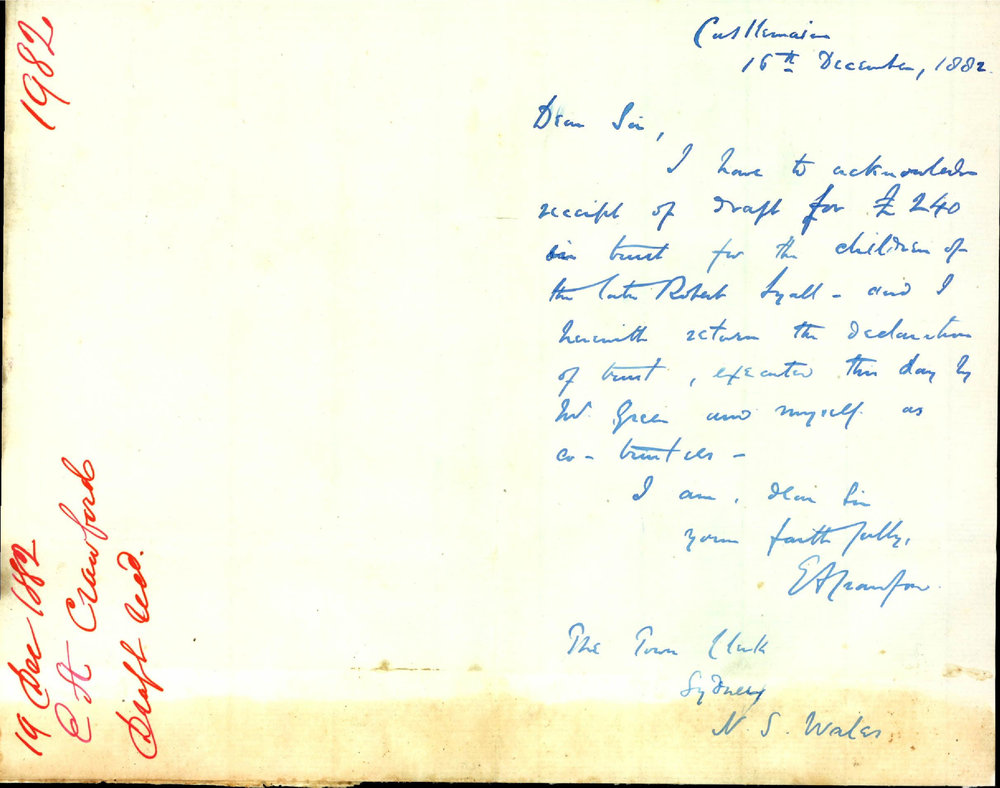 1982
19 Dec 1882
E A Crawford
Draft recd.
Castlemaine
16th December, 1882
Dear Sir,
I have to acknowledge
receipt of draft for £240
in trust for the children of
the late Robert Lyall - and I
herewith return the declaration
of trust, executed this day by
Mr Green and myself as
co-trustees -
I am, dear Sir
yours faithfully,
E A Crawford
The Town Clerk
Sydney
N. S. Wales